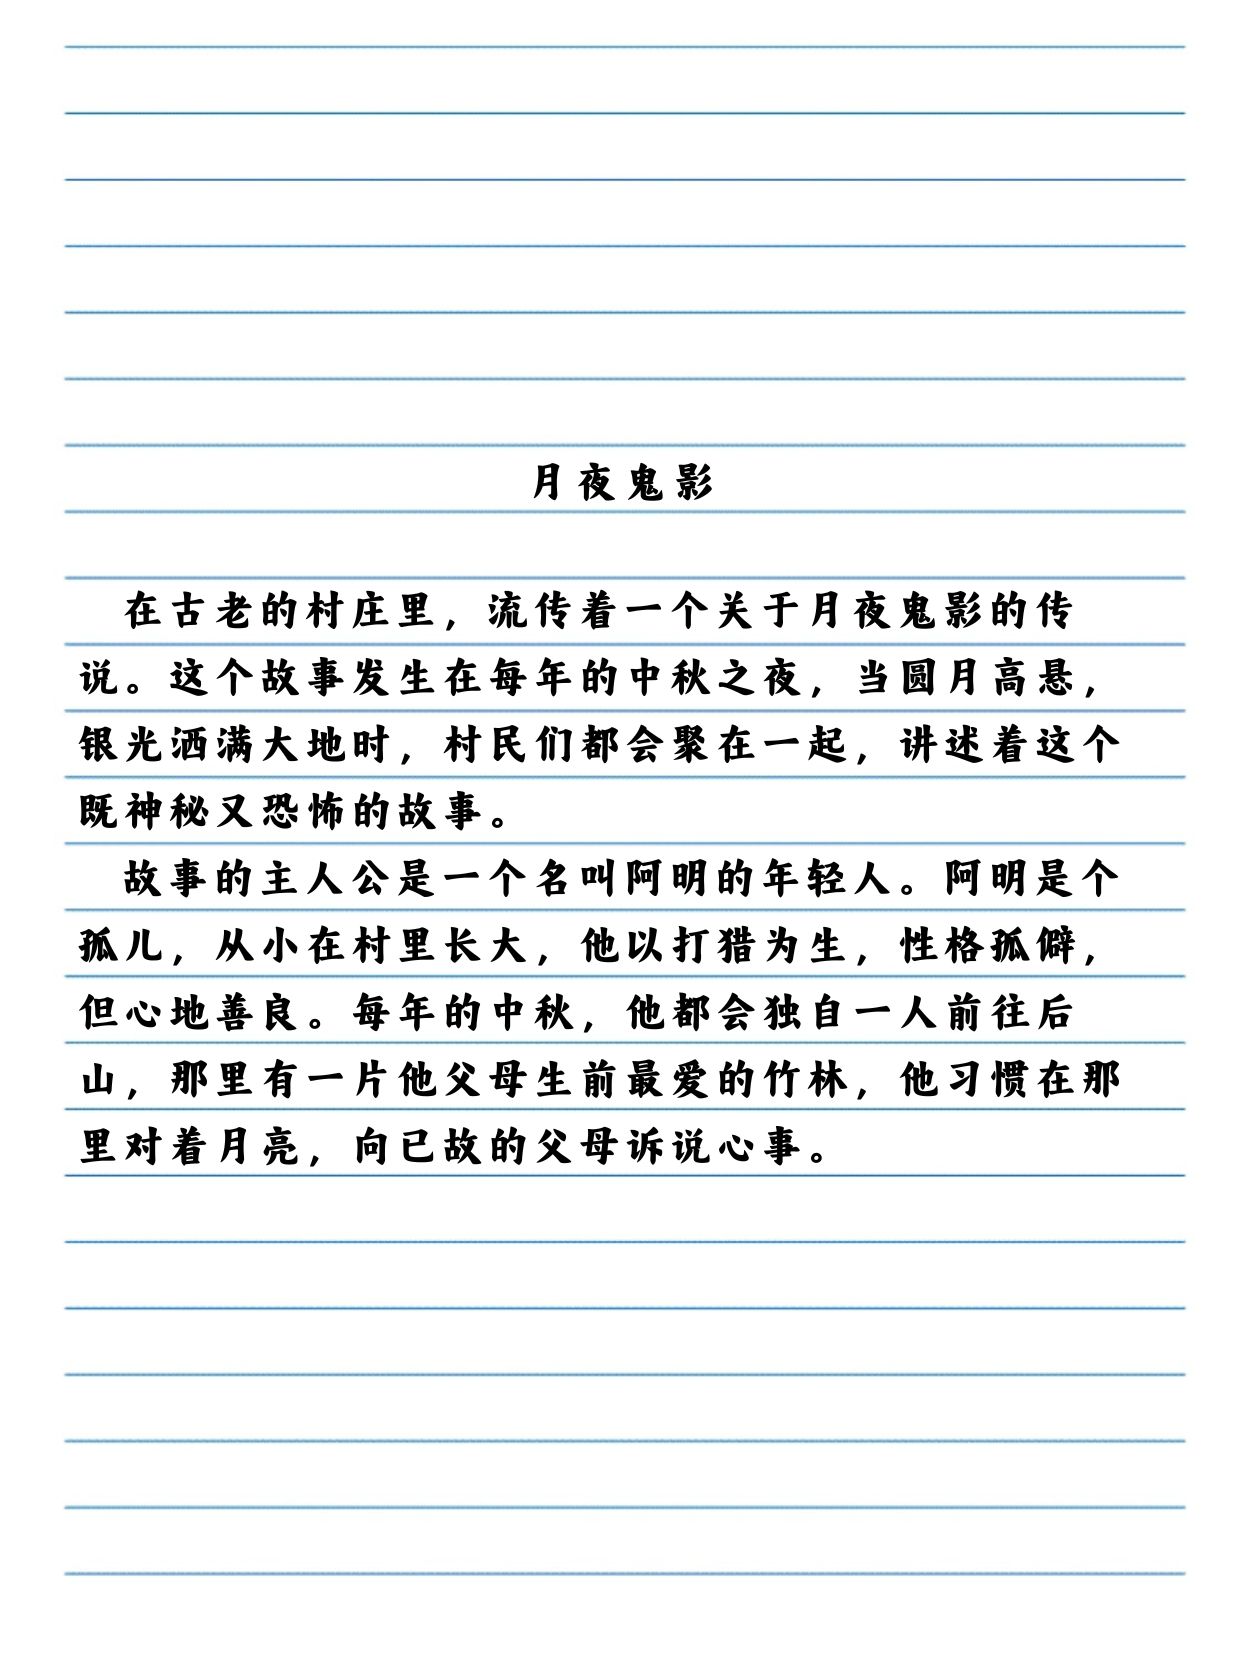 月夜鬼影
在古老的村庄里，流传着一个关于月夜鬼影的传
说。这个故事发生在每年的中秋之夜，当圆月高悬，
银光洒满大地时，村民们都会聚在一起，讲述着这个
既神秘又恐怖的故事。
故事的主人公是一个名叫阿明的年轻人。阿明是个
孤儿，从小在村里长大，他以打猎为生，性格孤僻，
但心地善良。每年的中秋，他都会独自一人前往后
山，那里有一片他父母生前最爱的竹林，他习惯在那
里对着月亮，向已故的父母诉说心事。